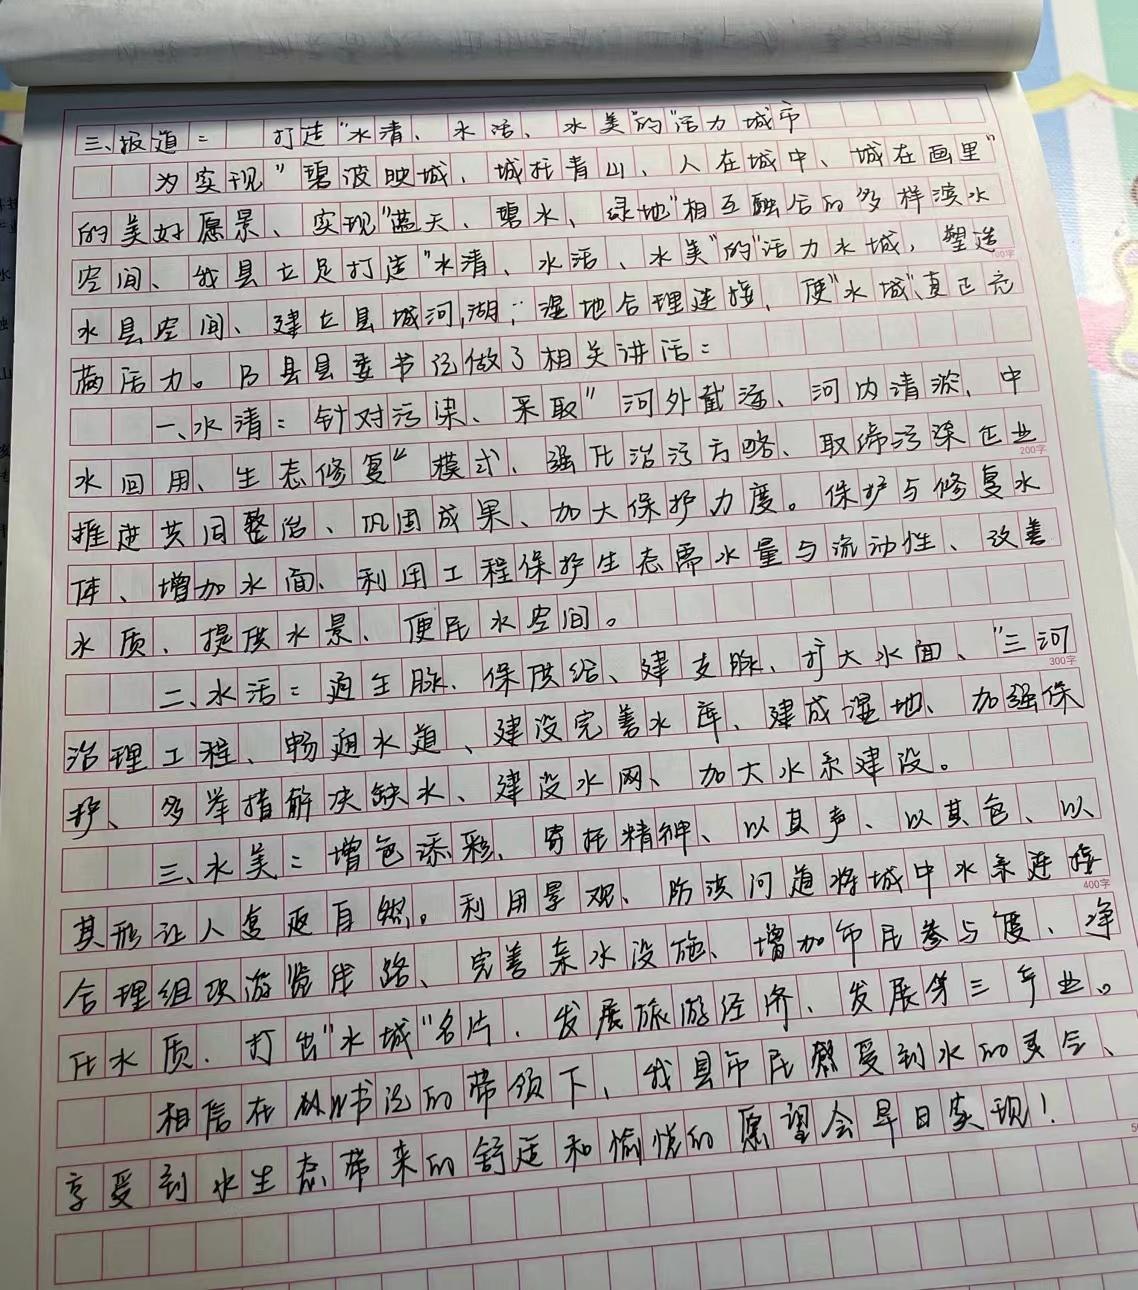 三、报道： 打造“水清、水活、水美”的“活力城市
为实现“碧波映城、城托青山、人在城中、城在画里”
的美好愿景、实现“蓝天、碧水、绿地”相互融合的多样滨水
空间、我县立足打造“水清、水活、水美”的“活力水城，塑造
100字
水县空间、建立县城河,湖,湿地合理连接，使“水城”真正充
满活力。B县县委书记做了相关讲话：
一、水清：针对污染、采取“河外截污、河内清淤、中
水回用、生态修复”模式、强化治污方略、取缔污染企业
200字
推进共同整治、巩固成果、加大保护力度。保护与修复水
体、增加水面、利用工程保护生态需水量与流动性、改善
水质、提供水景、便民水空间。
二、水活：通主脉、保供给、建支脉、扩大水面、“三河
300字
治理工程、畅通水道、建设完善水库、建成湿地、加强保
护、多举措解决缺水、建设水网、加大水系建设。
三、水美：增色添彩、寄托精神、以其声、以其色、以
其形让人复返自然。利用景观、防洪河道将城中水系连接
400字
合理组织游览线路、完善亲水设施、增加市民参与度、净
化水质、打出“水城”名片、发展旅游经济、发展第三产业。
相信在从从书记的带领下、我县市民感受到水的灵气、
享受到水生态带来的舒适和愉悦的愿望会早日实现！